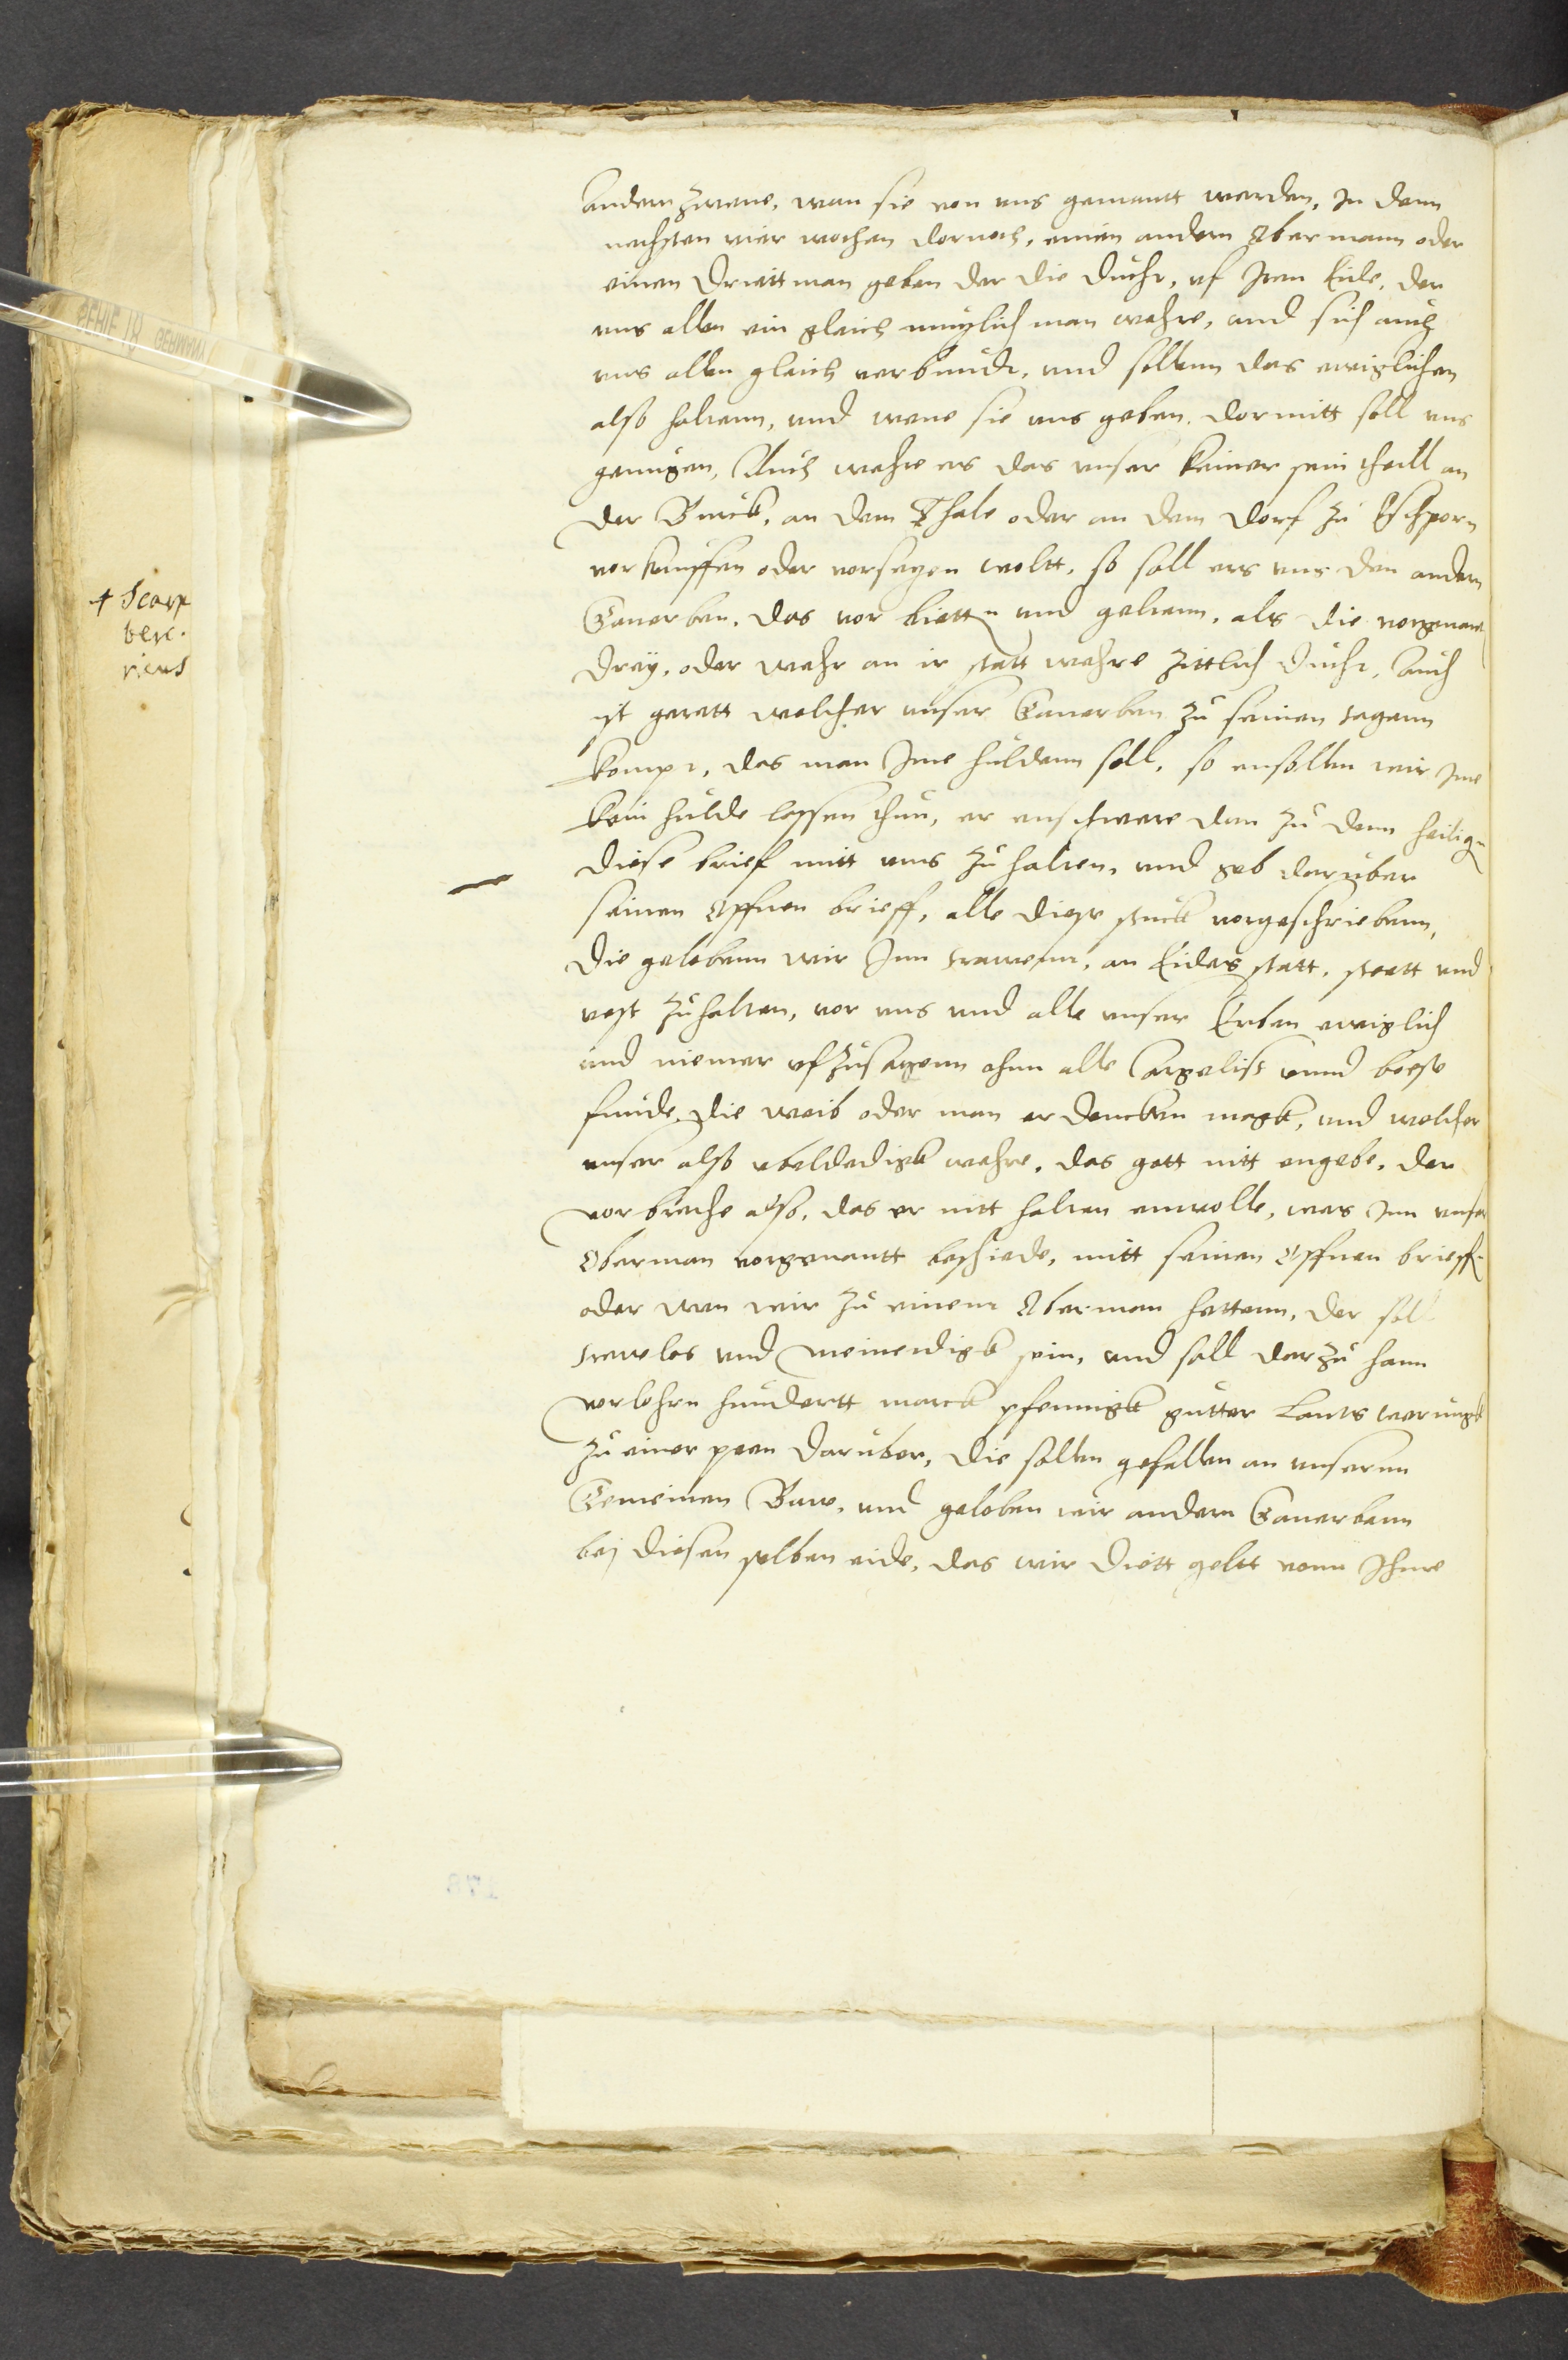 andern zwene, wan sie von uns gemantt werden, In denn
nechsten vier wochen dornoch, einen andern Obermann oder
einen Drietman geben der die duchr, uf Iren Eide, der
uns allen ein gleich muglich man wehre, und sich auch
uns allen gleich verbunde, und sollenn das ewiglichen
also haltenn, und wene sie uns geben, dormitt soll uns
genugen, Auch wehre es das unser keiner sein theill an
der Burck, an dem Thale oder an dem dorf zu
vorkauffen oder vorsetzen woltt, so soll ers uns den andern
Ganerben, das vor biettn und gebenn, als die vorgenan
drey, oder wehr an ir statt wehre zittlich duchr, Auch
ist gerett welcher unser Ganerben zu seinen tagenn
kompt, das man Ime huldenn soll, so ensollen wir Ime
kein hulde lassen thun, er enschwere dan zu denn heilign
diese brief mitt uns zu halten, und geb daruber
seinen offnen brieff, alle diese stuck vorgeschriebenn,
die gelobenn wir Inn trawenn, an Eides statt, steett und
vest zuhalten, vor uns und alle unser Erben ewiglich
und niemer ufzusagenn ohnn alle Argelist unnd boese
funde, die weib oder man erdencken magk, und welcher
unser also ubeldedigk wehre, das gott nitt engebe, der
vorbreche also, das er nitt halten enwolle, was Inn unser
Oberman vorgenantt beschiede, mitt seinen offnen brieff
oder wen wir zu einem Oberman hettenn, der soll
trewelos und meineidigk sein, und soll darzu hann
vorlohrn hundertt marck pfennigk gutter Lants werungk
zu einer peen daruber, die sollen gefallen an unsernn
Gemeinen Buwe, und geloben wir andern Ganerbenn
bej diesen selben eide, das wir diett geltt vonn Ihme